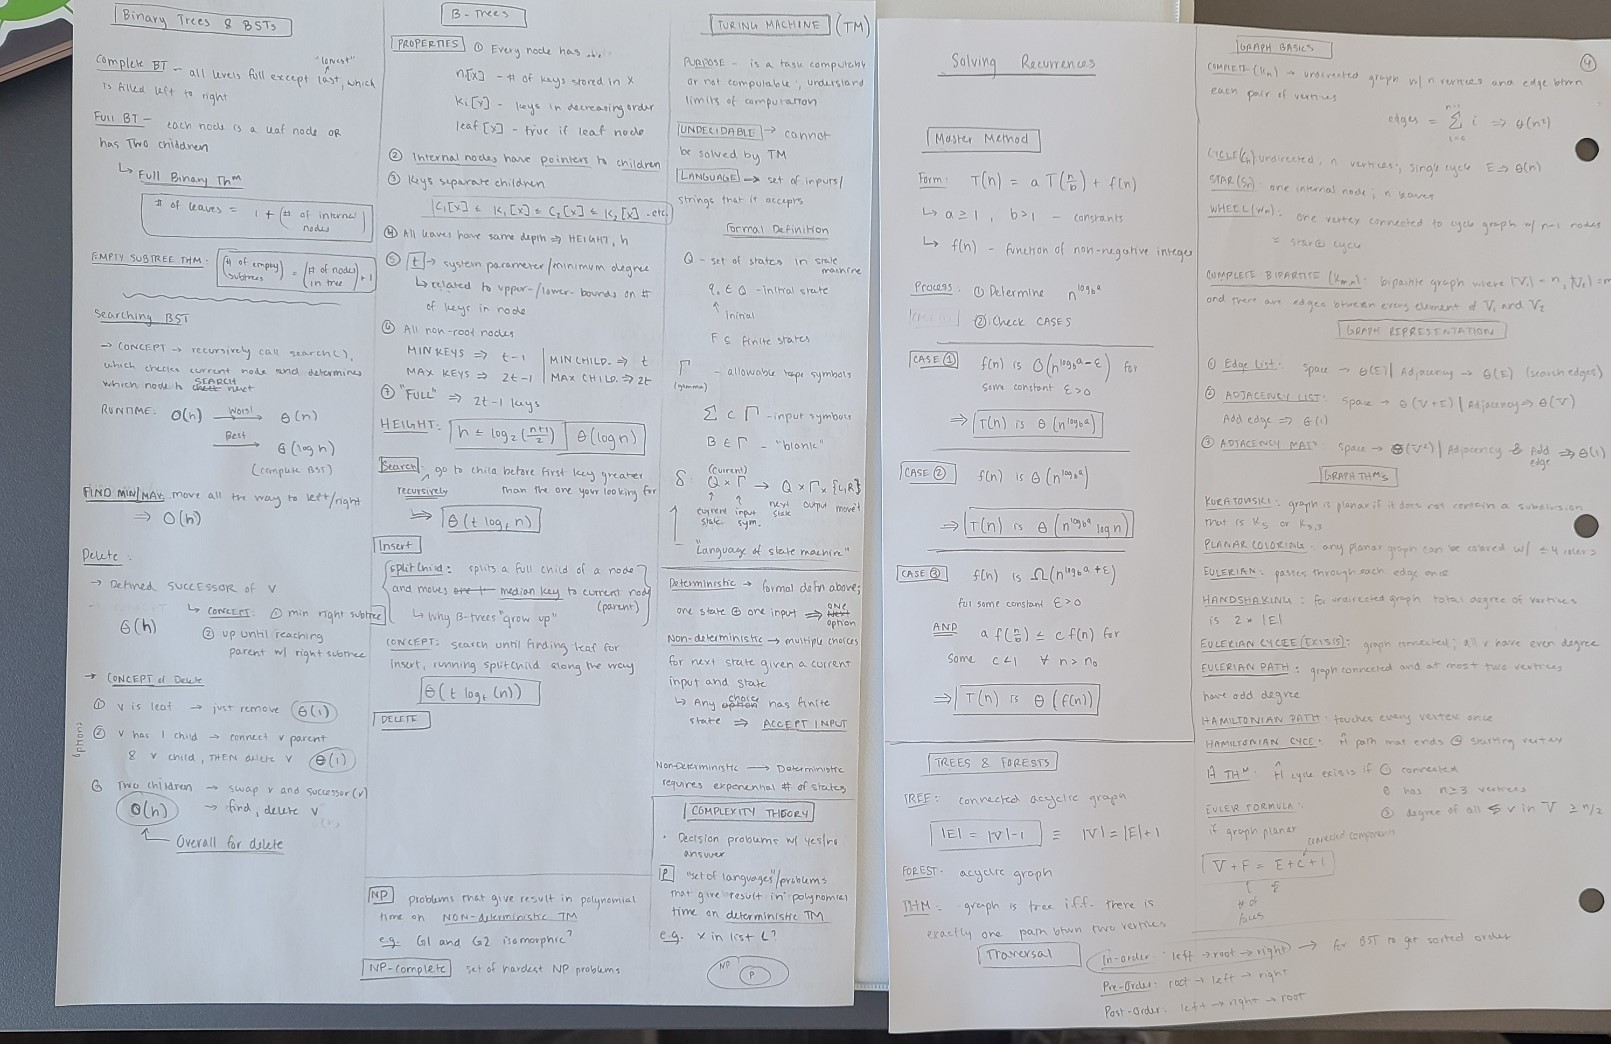 Binary Trees & BSTs
"lowest"
Complete BT - all levels full except last, which
is filled left to right
Full BT - each node is a leaf node OR
has TWO children
↳ Full Binary Thm
# of leaves = 1 + (# of internal nodes)
EMPTY SUBTREE THM: (# of empty subtrees) = (# of nodes in tree) + 1
Searching BST
→ CONCEPT → recursively call search(),
which checks current node and determines
which node to SEARCH next
RUNTIME: O(h) Worst → θ(n)
Best → θ(log n)
(complete BST)
FIND MIN/MAX: move all the way to left/right
⇒ O(h)
Delete:
→ Defined SUCCESSOR of V
↳ CONCEPT: ① min right subtree
θ(h) ② up until reaching
parent w/ right subtree
→ CONCEPT of Delete
options
① v is leaf → just remove θ(1)
② v has 1 child → connect v parent
& v child, THEN delete v θ(1)
③ Two children → swap v and successor(v)
O(h) → find, delete v
Overall for delete
B-Trees
PROPERTIES ① Every node has ...
n[x] - # of keys stored in x
Ki[x] - keys in decreasing order
leaf [x] - true if leaf node
② Internal nodes have pointers to children
③ Keys separate children
C1[x] ≤ K1[x] ≤ C2[x] ≤ K2[x] .. etc
④ All leaves have same depth ⇒ HEIGHT, h
⑤ t → system parameter/minimum degree
↳ related to upper-/lower-bounds on #
of keys in node
⑥ All non-root nodes
MIN KEYS ⇒ t-1 | MIN CHILD. ⇒ t
MAX KEYS ⇒ 2t-1 | MAX CHILD. ⇒ 2t
⑦ "FULL" ⇒ 2t-1 keys
HEIGHT: h ≤ log2 (n+1/2) θ(log n)
Search: go to child before first key greater
recursively than the one your looking for
⇒ θ(t logt n)
Insert
splitChild: splits a full child of a node
and moves median key to current node
(parent)
↳ Why B-trees "grow up"
CONCEPT: search until finding leaf for
insert, running splitChild along the way
θ(t logt (n))
DELETE
NP problems that give result in polynomial
time on NON-deterministic TM
e.g. G1 and G2 isomorphic?
NP-complete set of hardest NP problems
TURING MACHINE (TM)
PURPOSE - is a task computable
or not computable; understand
limits of computation
UNDECIDABLE → cannot
be solved by TM
LANGUAGE → set of inputs/
strings that it accepts
Formal Definition
Q - set of states in state
machine
q0 ∈ Q - initial state
↑
initial
F ⊆ finite states
Γ - allowable tape symbols
(gamma)
Σ ⊂ Γ - input symbols
B ∈ Γ - "blank"
(current)
δ: Q × Γ → Q × Γ × {L,R}
current state input sym. next state output mov't
"Language of state machine"
Deterministic → formal defn above;
one state ⊕ one input ⇒ ONE option
Non-deterministic → multiple choices
for next state given a current
input and state
↳ Any choice has finite
state ⇒ ACCEPT INPUT
Non-Deterministic → Deterministic
requires exponential # of states
COMPLEXITY THEORY
• Decision problems w/ yes/no
answer
P "set of languages"/problems
that give result in polynomial
time on deterministic TM
e.g. x in list L?
NP P
Solving Recurrences
Master Method
Form: T(n) = a T(n/b) + f(n)
↳ a ≥ 1, b > 1 - constants
↳ f(n) - function of non-negative integer
Process: ① Determine n^logb a
② Check CASES
CASE ① f(n) is O(n^logb a - ε) for
some constant ε > 0
⇒ T(n) is θ(n^logb a)
CASE ② f(n) is θ(n^logb a)
⇒ T(n) is θ(n^logb a log n)
CASE ③ f(n) is Ω(n^logb a + ε)
for some constant ε > 0
AND a f(n/b) ≤ c f(n) for
some c < 1 ∀ n > n0
⇒ T(n) is θ(f(n))
TREES & FORESTS
TREE: connected acyclic graph
|E| = |V| - 1 ≡ |V| = |E| + 1
FOREST: acyclic graph
THM: graph is tree i.f.f. there is
exactly one path btwn two vertices
Traversal
In-order: left → root → right → for BST to get sorted order
Pre-Order: root → left → right
Post-Order: left → right → root
4
GRAPH BASICS
COMPLETE (Kn) → undirected graph w/ n vertices and edge btwn
each pair of vertices
edges = Σ i ⇒ θ(n²)
CYCLE (Cn): undirected, n vertices; single cycle E ⇒ θ(n)
STAR (Sn): one internal node; n leaves
WHEEL (Wn): one vertex connected to cycle graph w/ n-1 nodes
= star ⊕ cycle
COMPLETE BIPARTITE (Km,n): bipartite graph where |V1| = n, |V2| = m
and there are edges between every element of V1 and V2
GRAPH REPRESENTATION
① Edge List: space → θ(E) | Adjacency → θ(E) (search edges)
② ADJACENCY LIST: space → θ(V+E) | Adjacency ⇒ θ(V)
Add edge ⇒ θ(1)
③ ADJACENCY MAT: space → θ(V²) | Adjacency & Add edge ⇒ θ(1)
GRAPH THMS
KURATOWSKI: graph is planar if it does not contain a subdivision
that is K5 or K3,3
PLANAR COLORING: any planar graph can be colored w/ ≤ 4 colors
EULERIAN: passes through each edge once
HANDSHAKING: for undirected graph total degree of vertices
is 2 * |E|
EULERIAN CYCLE (EXISTS): graph connected; all v have even degree
EULERIAN PATH: graph connected and at most two vertices
have odd degree
HAMILTONIAN PATH: touches every vertex once
HAMILTONIAN CYCE: Ĥ path that ends @ starting vertex
Ĥ THM: Ĥ cycle exists if ① connected
② has n ≥ 3 vertices
③ degree of all v in V ≥ n/2
EULER FORMULA:
if graph planar
connected components
V + F = E + C + 1
# of
faces